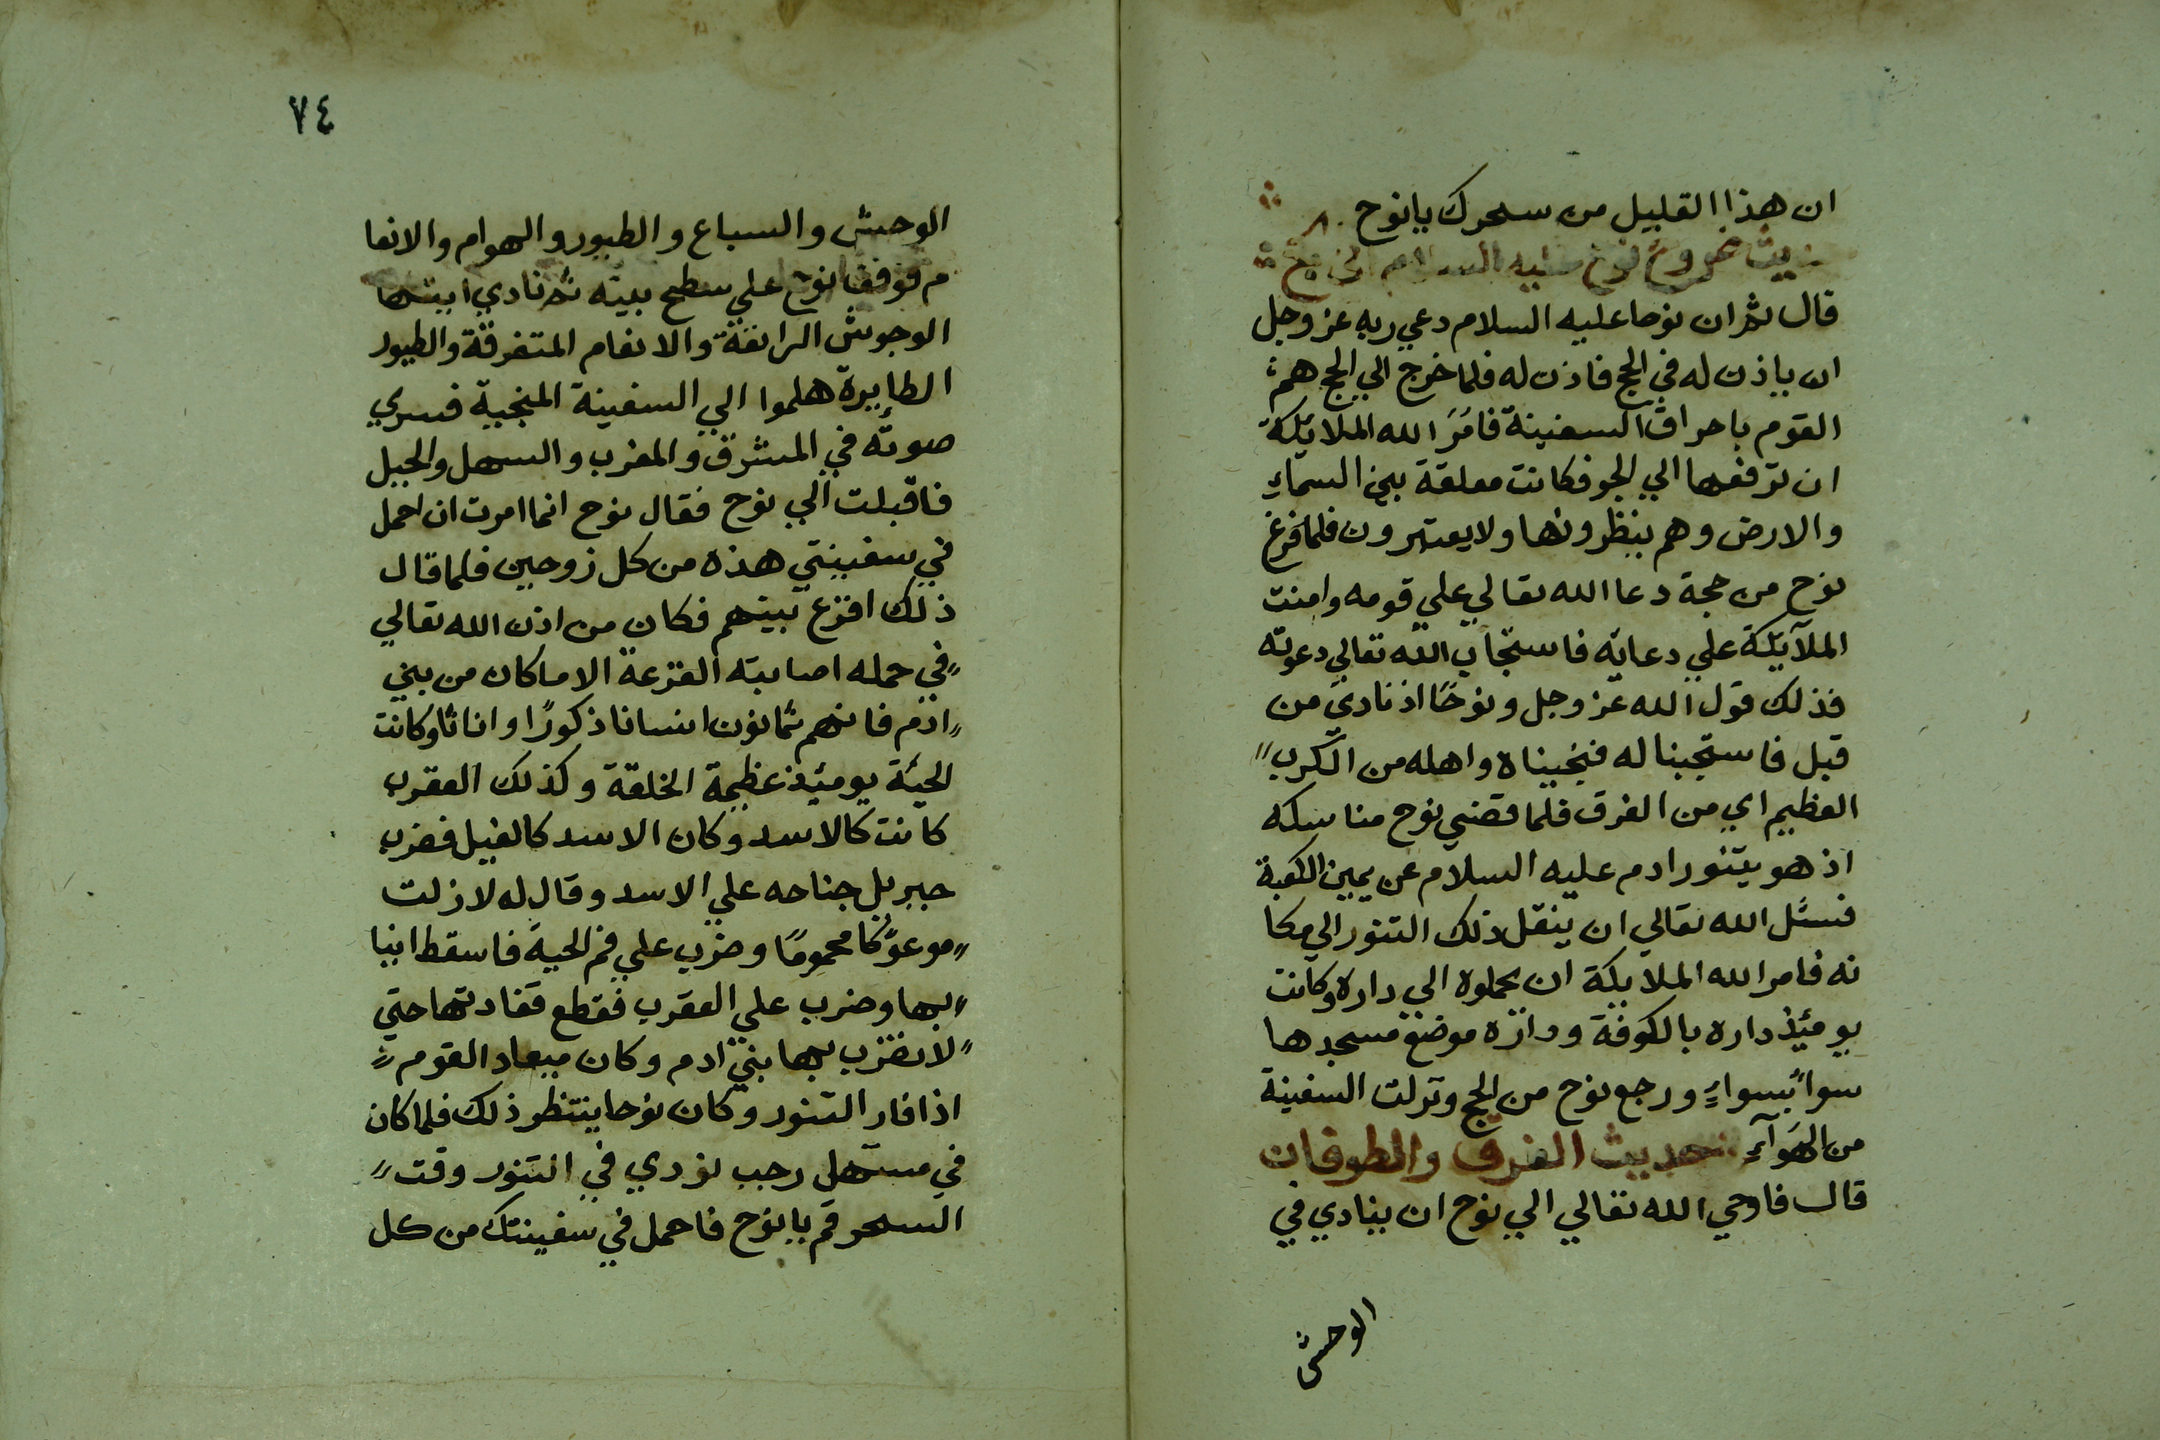 ان هذا القليل من سحرك يانوح
حديث خروج نوح عليه السلام الى الحج
قال ثم ان نوحا عليه السلام دعي ربه عز وجل
ان ياذن له في الحج فاذن له فلما خرج الي الحج هم
القوم باحراق السفينة فامَرَ الله الملايكة
ان ترفعها الي الجو فكانت معلقة بين السماءِ
والارض وهم ينظرونها ولا يعتبرون فلما فرغ
نوح من حجة دعا الله تعالي علي قومه وامنت
الملآيكة علي دعايه فاستجاب الله تعالي دعوته
فذلك قول الله عز وجل ونوحًا اذ نادي من
قبل فاستجبنا له فنجيناه واهله من الكرب
العظيم اي من الغرق فلما قضي نوح مناسكه
اذ هو بتنور ادم عليه السلام عن يمين الكعبة
فسئل الله تعالي ان ينقل ذلك التنور الي مكا
نه فامر الله الملايكة ان يحملوه الي داره وكانت
يوميئذ داره بالكوفة وداره موضع مسجدها
سواءً بسواءٍ ورجع نوح من الحج ونزلت السفينة
من الهوآءِ حديث الغرق والطوفان
قال فاوحي الله تعالي الي نوح ان ينادي في
الوحش
٧٤
الوحش والسباع والطيور والهوام والانعا
م فوقف نوح علي سطح بيته ثم نادي ايتها
الوحوش الراتعة والانعام المتفرقة والطيور
الطايرة هلموا الي السفينة المنجية فسري
صوته في المشرق والمغرب والسهل والجبل
فاقبلت الي نوح فقال نوح انما امرت ان احمل
في سفينتي هذه من كل زوجين فلما قال
ذلك اقرع بينهم فكان من اذن الله تعالي
في حمله اصابته القرعة الا ما كان من بني
ادم فانهم ثمانون انسانا ذكورًا واناثا وكانت
الحيّة يوميئذ عظيمة الخلقة وكذلك العقرب
كانت كالاسد وكان الاسد كالفيل فضرب
جبريل جناحه علي الاسد وقال له لا زلت
موعوكا محمومًا وضرب علي فم الحية فاسقط انيا
بها وضرب علي العقرب فقطع قفادتها حتي
لا تضرب بها بني ادم وكان ميعاد القوم
اذا فار التنور وكان نوحا ينتظر ذلك فلما كان
في مستهل رجب نودي في التنور وقت
السحر قم يا نوح فاحمل في سفينتك من كل